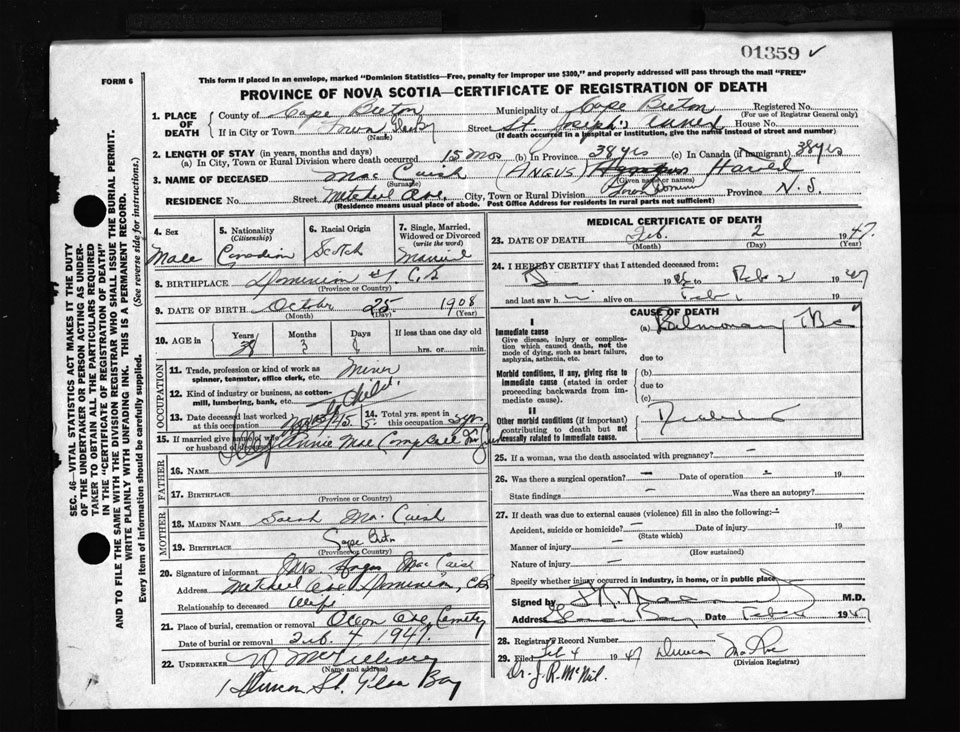 01359 ✓
FORM 6
This form if placed in an envelope, marked "Dominion Statistics—Free, penalty for improper use $300," and properly addressed will pass through the mail "FREE"
PROVINCE OF NOVA SCOTIA—CERTIFICATE OF REGISTRATION OF DEATH
1. PLACE OF DEATH County of Cape Breton Municipality of Cape Breton Registered No.
(For use of Registrar General only)
If in City or Town Town Street St. Joseph's House No.
(Name) (If death occurred in a hospital or institution, give the name instead of street and number)
2. LENGTH OF STAY (in years, months and days)
(a) In City, Town or Rural Division where death occurred 15 mos (b) In Province 38 yrs (c) In Canada (if immigrant) 38 yrs
3. NAME OF DECEASED Mac Cuish (ANGUS)
(Surname) (Given name or names)
RESIDENCE No. Street Mitchel Ave. City, Town or Rural Division Town Dominion Province N. S.
(Residence means usual place of abode. Post Office Address for residents in rural parts not sufficient)
4. Sex 5. Nationality (Citizenship) 6. Racial Origin 7. Single, Married, Widowed or Divorced (write the word)
Male Canadian Scotch Married
8. BIRTHPLACE Dominion #1 C. B.
(Province or Country)
9. DATE OF BIRTH October 25 1908
(Month) (Day) (Year)
10. AGE in Years Months Days If less than one day old
38 3 hrs. or min.
OCCUPATION
11. Trade, profession or kind of work as spinner, teamster, office clerk, etc. Miner
12. Kind of industry or business, as cotton-mill, lumbering, bank, etc.
13. Date deceased last worked at this occupation 14. Total yrs. spent in this occupation
15. If married give name of wife or husband of deceased Annie Mae Campbell
FATHER
16. NAME
17. BIRTHPLACE
(Province or Country)
MOTHER
18. MAIDEN NAME Sarah Mac Cuish
19. BIRTHPLACE Cape Breton
(Province or Country)
20. Signature of informant Mrs Angus Mac Cuish
Address Mitchell Ave Dominion, C.B.
Relationship to deceased Wife
21. Place of burial, cremation or removal Ocean Ave Cemetery
Date of burial or removal Feb. 4 1947.
22. UNDERTAKER McGillivray
(Name and address)
St. Glace Bay
MEDICAL CERTIFICATE OF DEATH
23. DATE OF DEATH Feb. 2 1947.
(Month) (Day) (Year)
24. I HEREBY CERTIFY that I attended deceased from
19 to Feb 2 1947
and last saw h alive on Feb 19
CAUSE OF DEATH
I
Immediate cause (a) Pulmonary TBc
Give disease, injury or complication which caused death, not the mode of dying, such as heart failure, asphyxia, asthenia, etc.
due to
Morbid conditions, if any, giving rise to immediate cause (stated in order proceeding backwards from immediate cause). (b)
due to
(c)
II
Other morbid conditions (if important) contributing to death but not causally related to immediate cause.
25. If a woman, was the death associated with pregnancy? –
26. Was there a surgical operation? – Date of operation 19
State findings – Was there an autopsy?
27. If death was due to external causes (violence) fill in also the following:
Accident, suicide or homicide? – Date of injury 19
(State which)
Manner of injury –
(How sustained)
Nature of injury –
Specify whether injury occurred in industry, in home, or in public place
Signed by M.D.
Address Glace Bay Date Feb 1947
28. Registrar's Record Number
29. Filed Feb 4 1947 Duncan
(Division Registrar)
Dr. J. R. McNeil.
SEC. 46—VITAL STATISTICS ACT MAKES IT THE DUTY
OF THE UNDERTAKER OR PERSON ACTING AS UNDERTAKER
TO OBTAIN ALL THE PARTICULARS REQUIRED
IN THE "CERTIFICATE OF REGISTRATION OF DEATH"
AND TO FILE THE SAME WITH THE DIVISION REGISTRAR WHO SHALL ISSUE THE BURIAL PERMIT.
WRITE PLAINLY WITH UNFADING INK. THIS IS A PERMANENT RECORD.
Every item of information should be carefully supplied. (See reverse side for instructions.)